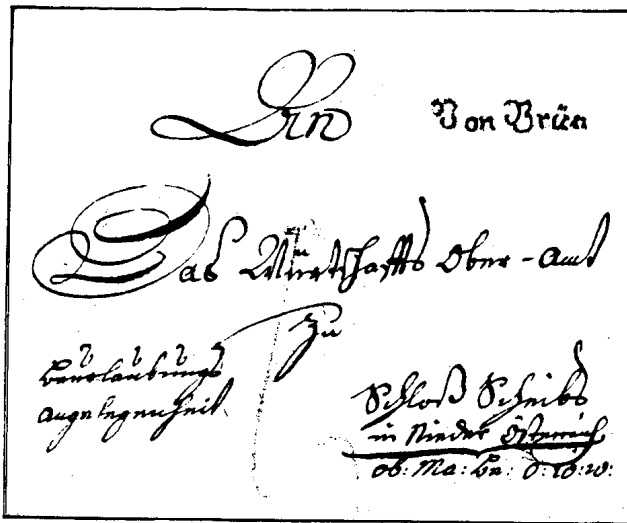 An Von Brün
Das Würtschaffts Ober-Amt
Zu
Beurlaubungs
angelegenheit
Schloß Scheibs
in Nieder Österreich
ob: Ma: be: